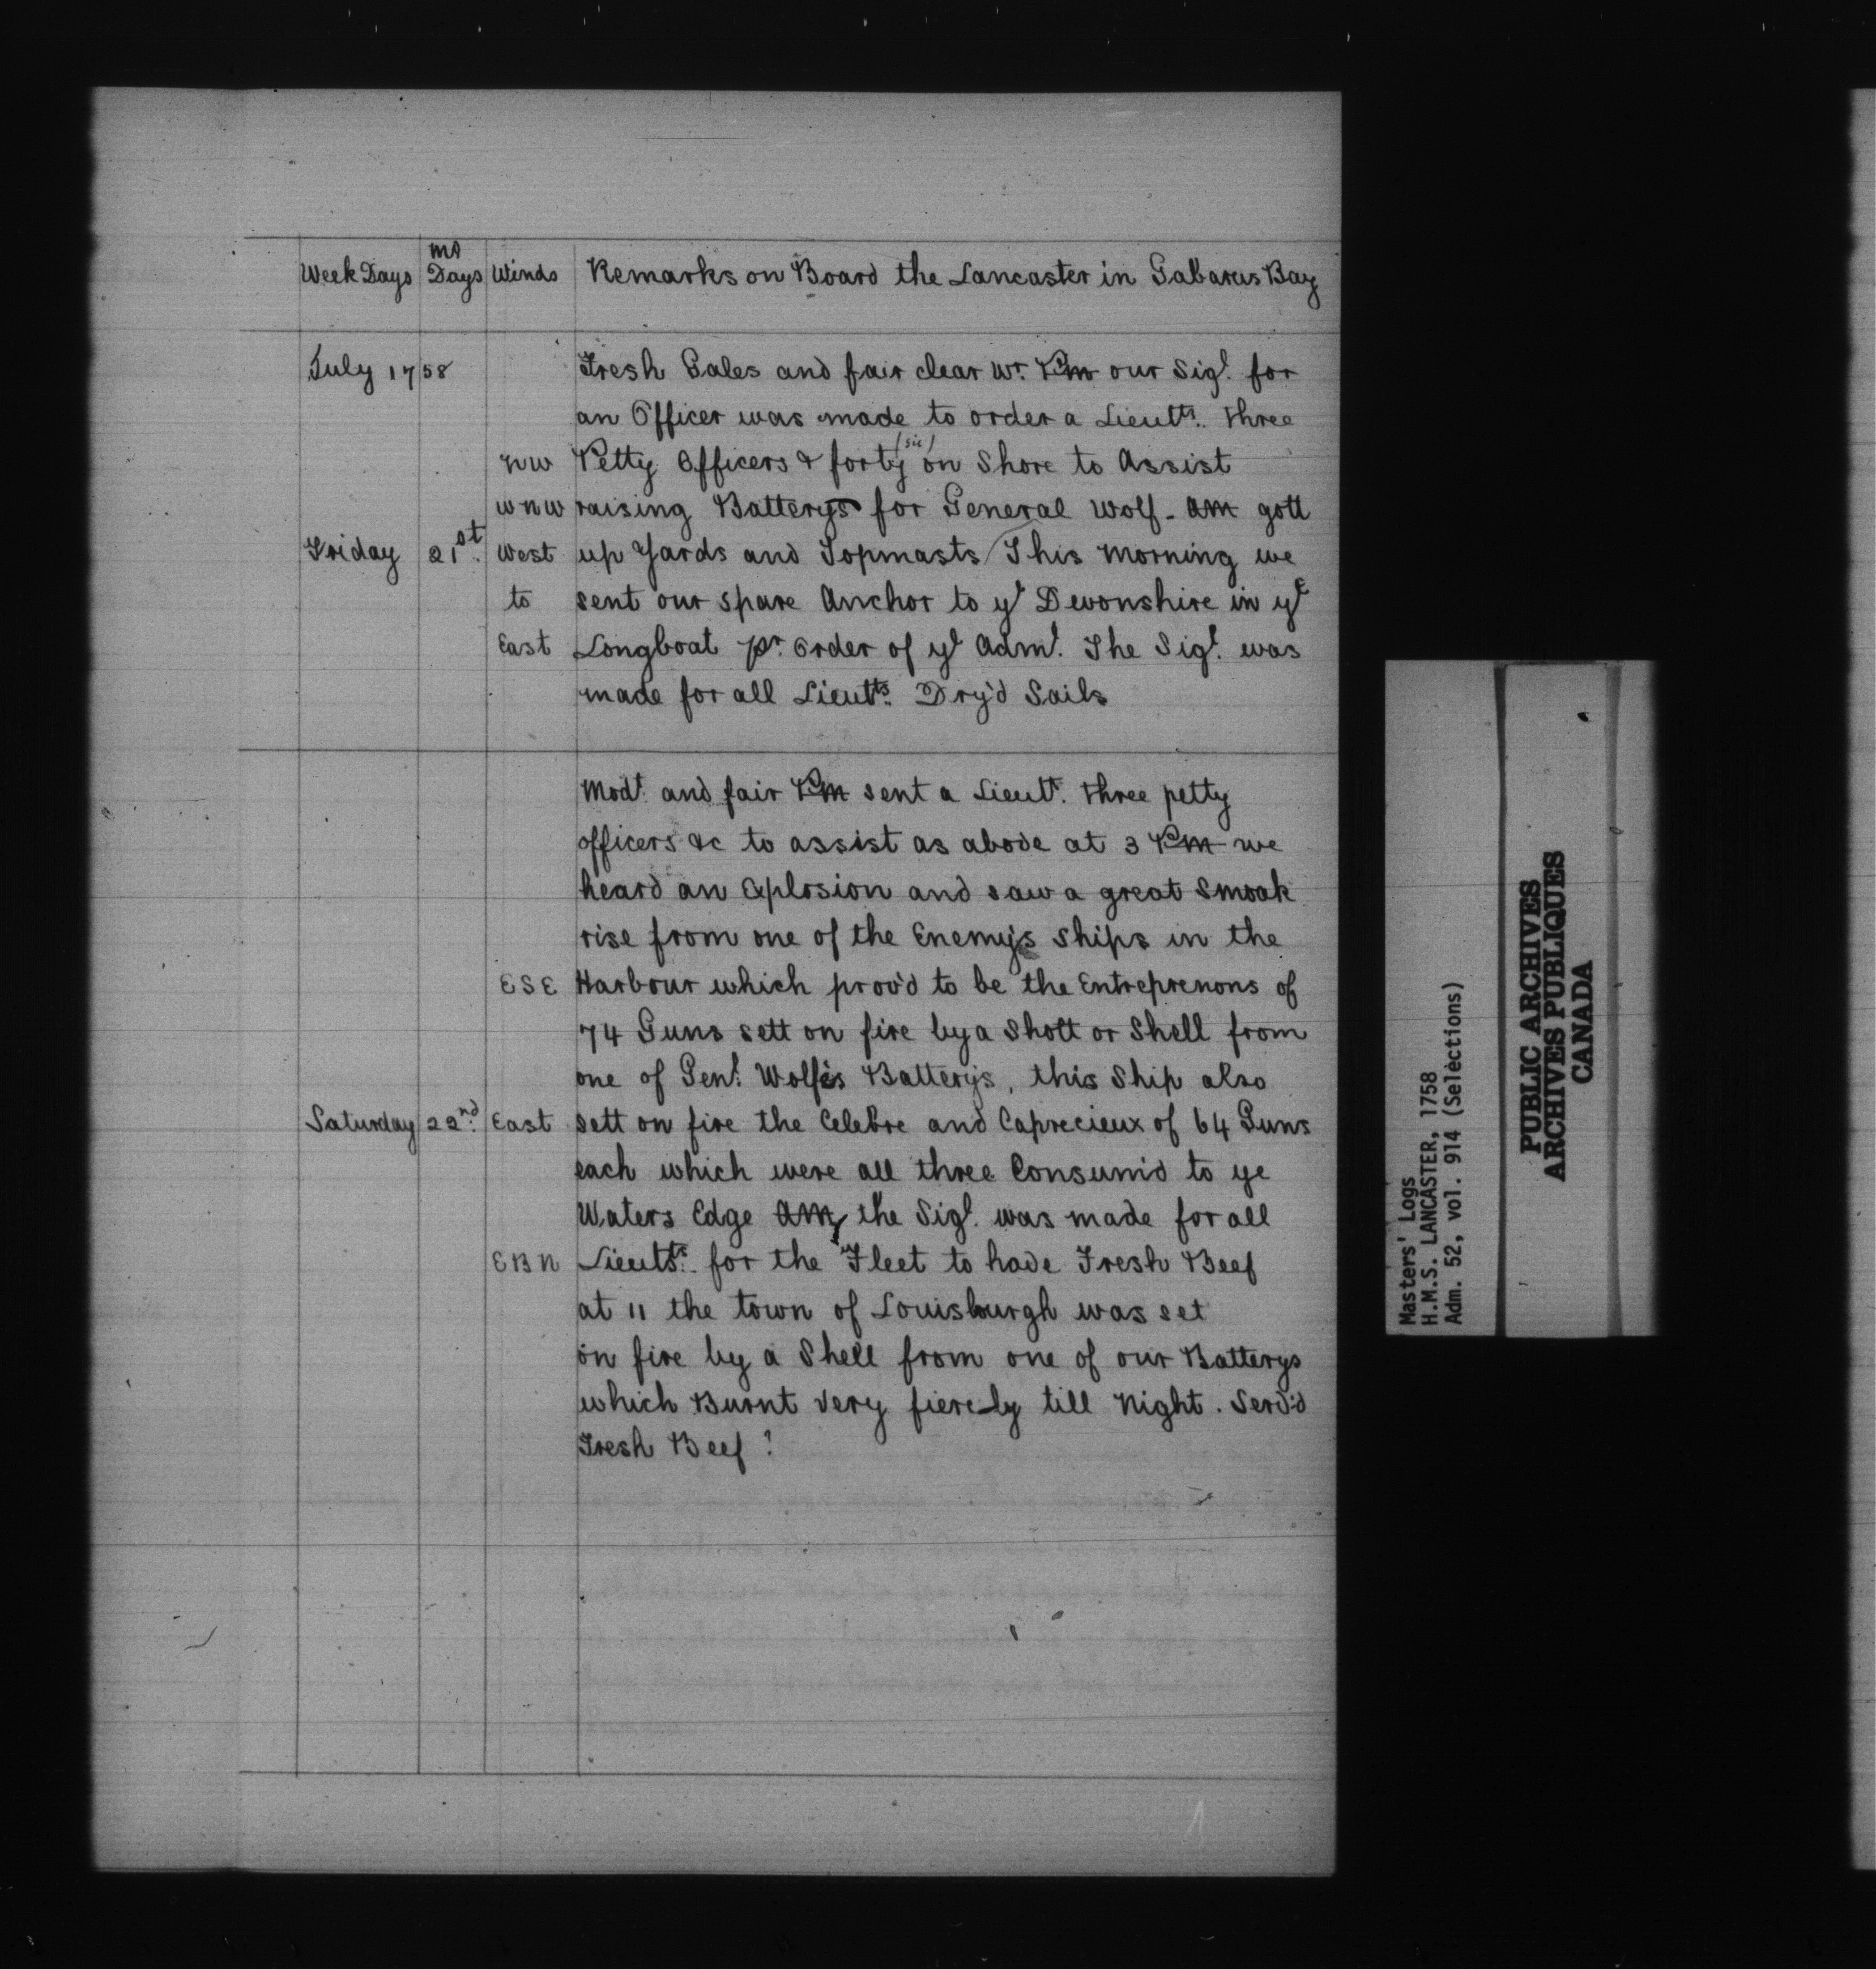 Week Days | Mo Days | Winds | Remarks on Board the Lancaster in Gabarus Bay
July 1758 Fresh Gales and fair clear Wr. PM our Sigl. for
an Officer was made to order a Lieutts. three
NW Petty Officers & forty (sic) on Shore to Assist
WNW raising Batterys for General Wolf - AM gott
Friday 21st. West up Yards and Topmasts / This Morning we
to sent our spare Anchor to ye Devonshire in ye
East Longboat pr. Order of ye Adml. The Sigl. was
made for all Lieutts. Dry'd Sails
Modt. and fair PM sent a Lieutt. three petty
officers &c to assist as above at 3 PM we
heard an Explosion and saw a great Smoak
rise from one of the Enemy's Ships in the
ESE Harbour which prov'd to be the Entreprenons of
74 Guns sett on fire by a Shott or Shell from
one of Genl. Wolfe's Battery's, this Ship also
Saturday 22nd. East sett on fire the Celebre and Caprecieux of 64 Guns
each which were all three Consum'd to ye
Waters Edge AM, the Sigl. was made for all
EBN Lieutts. for the Fleet to have Fresh Beef
at 11 the town of Louisburgh was set
on fire by a Shell from one of our Batterys
which Burnt very fiercely till Night. Serv'd
Fresh Beef !
Masters' Logs
H.M.S. LANCASTER, 1758
Adm. 52, vol. 914 (Selections)
PUBLIC ARCHIVES
ARCHIVES PUBLIQUES
CANADA